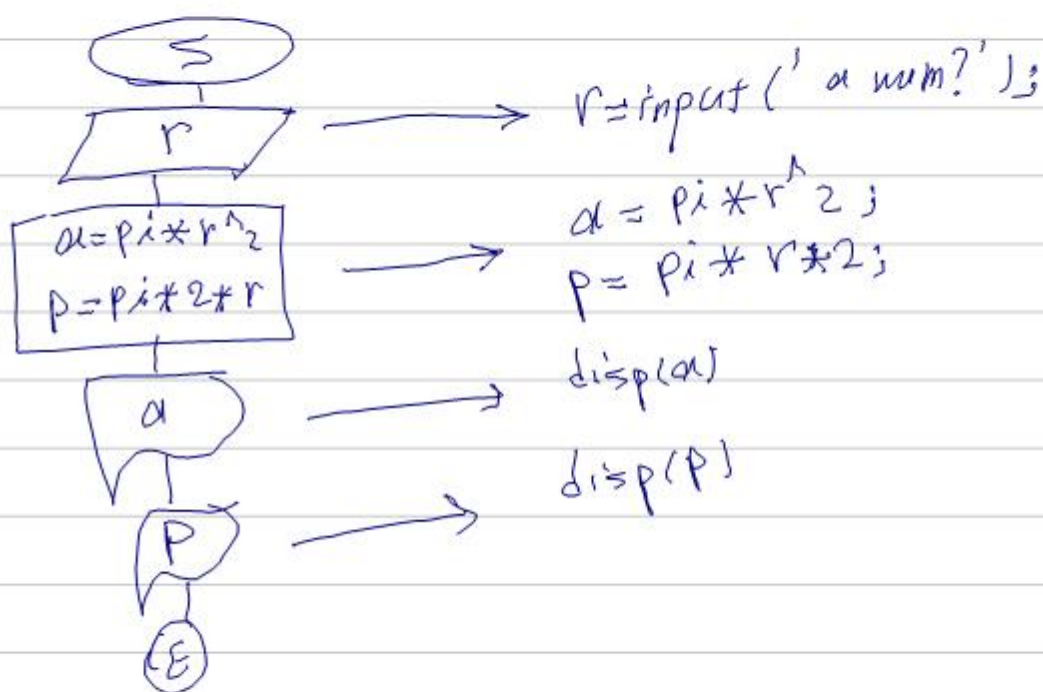 S
r
r=input('a num?');
a=pi*r^2
p=pi*2*r
a=pi*r^2;
p=pi*r*2;
a
disp(a)
P
disp(p)
E